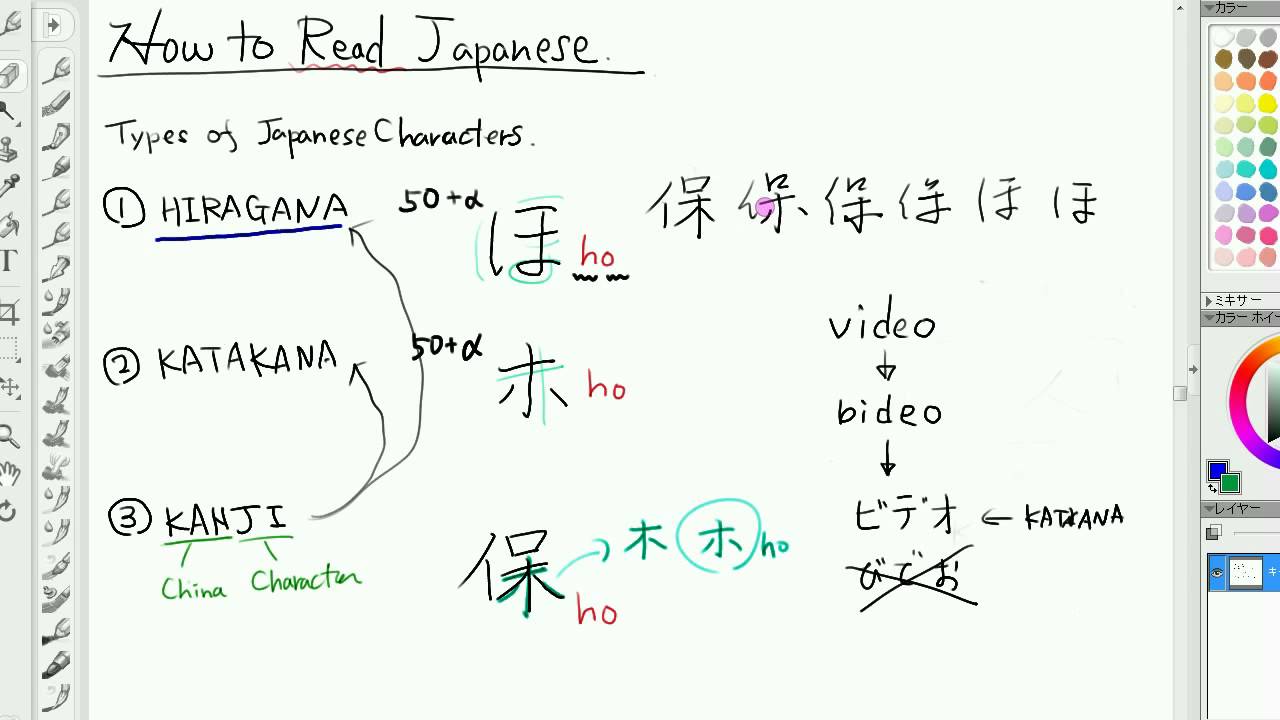 カラー
How to Read Japanese.
Types of Japanese Characters.
① HIRAGANA
50+α
ほ
ho
保 保 保 保 ほ ほ
② KATAKANA
50+α
ホ
ho
video
↓
bideo
↓
ビデオ ← KATAKANA
びでお
③ KANJI
China Character
保
ho
木 ホ ho
T
ミキサー
カラー ホイー
レイヤー
キ